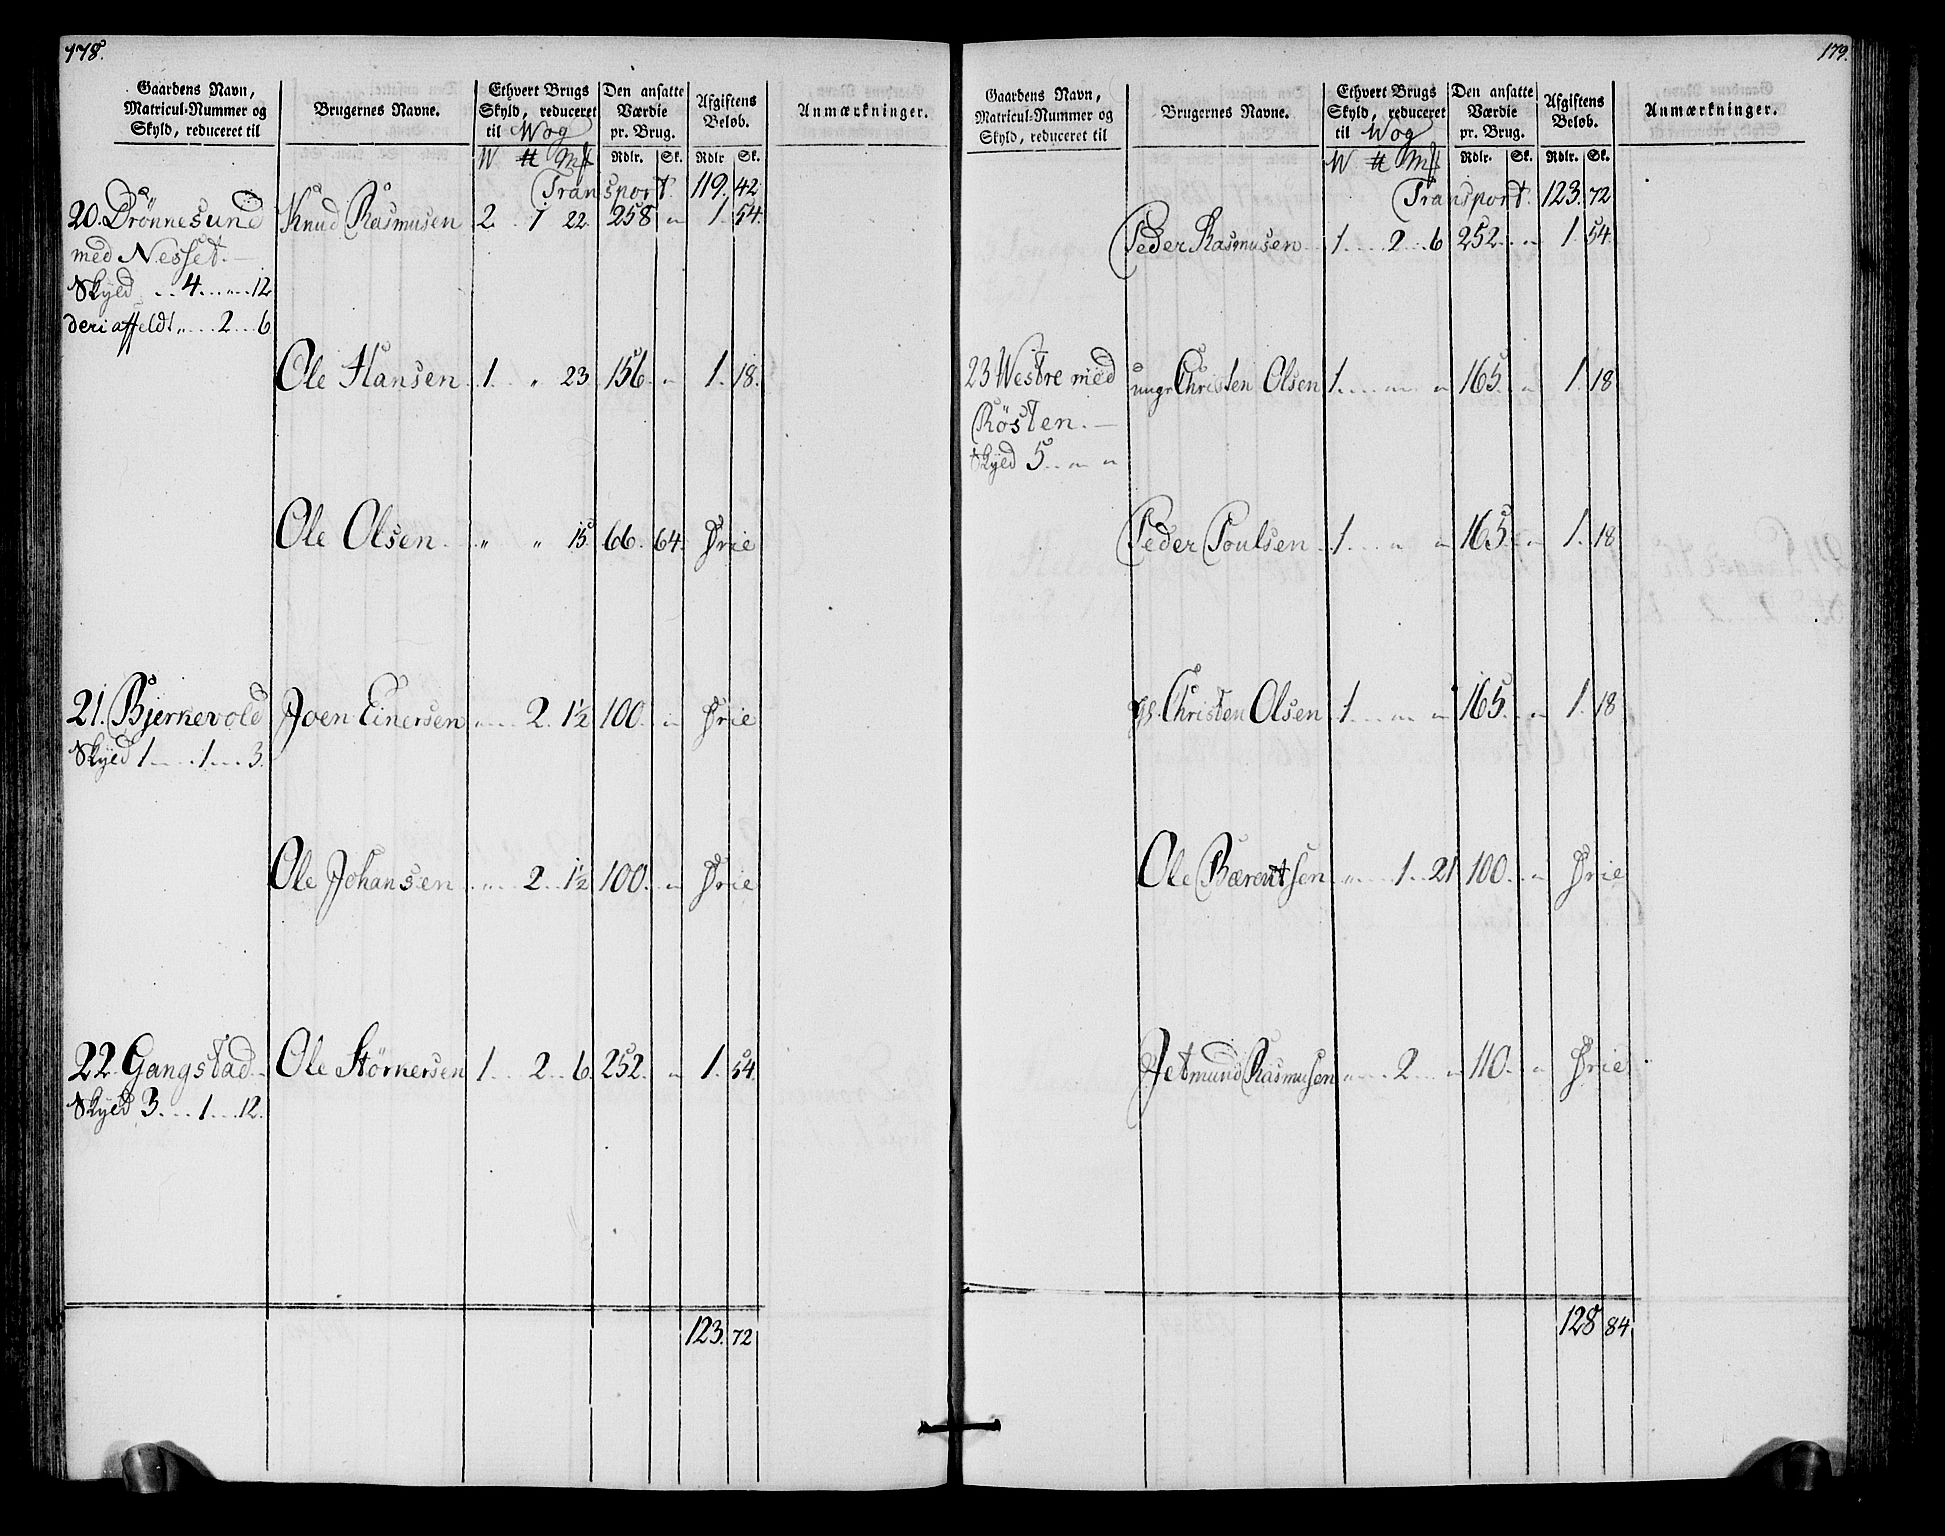 178.
Gaardens Navn, Matricul-Nummer og Skyld, reduceret til | Brugernes Navne. | Ethvert Brugs Skyld, reduceret til Wog | Den ansatte Værdie pr. Brug. | Afgiftens Beløb. | Anmærkninger.
W # Mk | Rdlr. Sk. | Rdlr Sk.
Transport. 119. 42
20. Drönnesund Knud Rasmusen 2. . 1 22. 258 " 1. 54.
med Nesset.
Skyld . . 4 . . " . . 12
deri affeldt " . . . 2 . . 6
Ole Hansen 1. . " 23 156. " 1. 18.
Ole Olsen. " " 15. 66. 64. Frie
21. Bjerkevold Joen Einersen " . . 2. 1½ 100. " Frie
Skyld 1 . . . 1 . . . 3.
Ole Johansen " . . 2 . . 1½ 100. " Frie
22. Gangstad. Ole Störkersen 1 . . 2 . . 6. 252. " 1. 54.
Skyld 3 . . . 1 . . . 12.
123. 72
179.
Gaardens Navn, Matricul-Nummer og Skyld, reduceret til | Brugernes Navne. | Ethvert Brugs Skyld, reduceret til Wog | Den ansatte Værdie pr. Brug. | Afgiftens Beløb. | Anmærkninger.
W # Mk | Rdlr. Sk. | Rdlr. Sk.
Transport. 123. 72
Peder Rasmusen 1 . . . 2 . . 6 252. " 1. 54.
23 Westre med unge Christen Olsen 1 . . . " " 165. " 1. 18
Rösten.
Skyld 5. . " "
Peder Poulsen 1 . . . " " 165. " 1. 18
Christen Olsen 1 . . . " " 165. " 1. 18
Ole Bærentsen " . . . 1 . . 21 100. " Frie
Jetmund Rasmusen " . . . 2 . . " 110. " Frie
128 84.